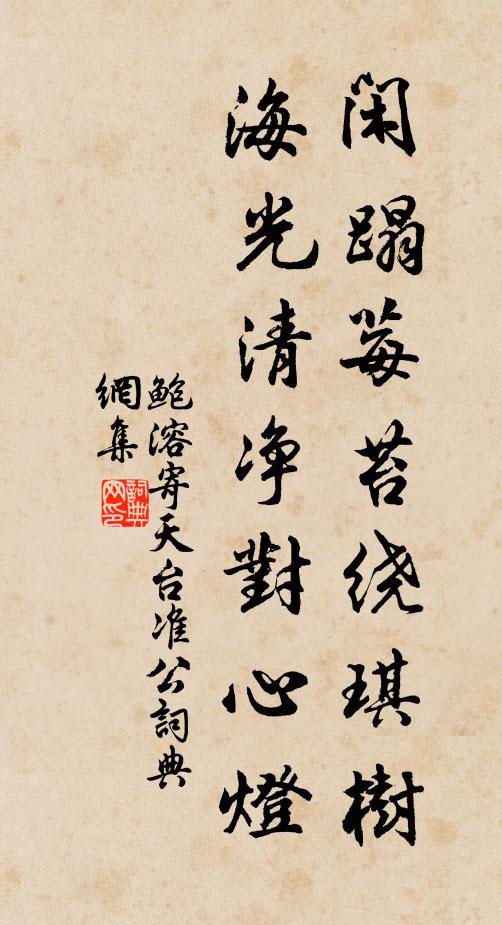 闲蹋莓苔绕琪樹
海光清净對心燈
鲍溶寄天台准公詞典
網集
詞典
网印